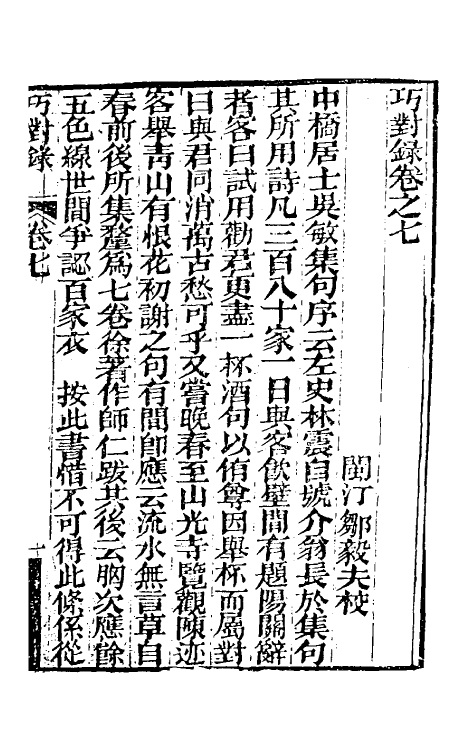 巧對錄卷之七
閩汀鄒毅夫校
中橋居士吳敏集句序云左史林震自號介翁長於集句
其所用詩凡三百八十家一日與客飲壁間有題陽關辭
者客曰試用勸君更盡一杯酒句以侑尊因舉杯而屬對
曰與君同消萬古愁可乎又嘗晚春至山光寺覽觀陳迹
客舉靑山有恨花初謝之句有間卽應云流水無言草自
春前後所集釐爲七卷徐著作師仁跋其後云胸次應餘
五色線世間爭認百家衣　按此書惜不可得此條係從
巧對錄　卷七　一